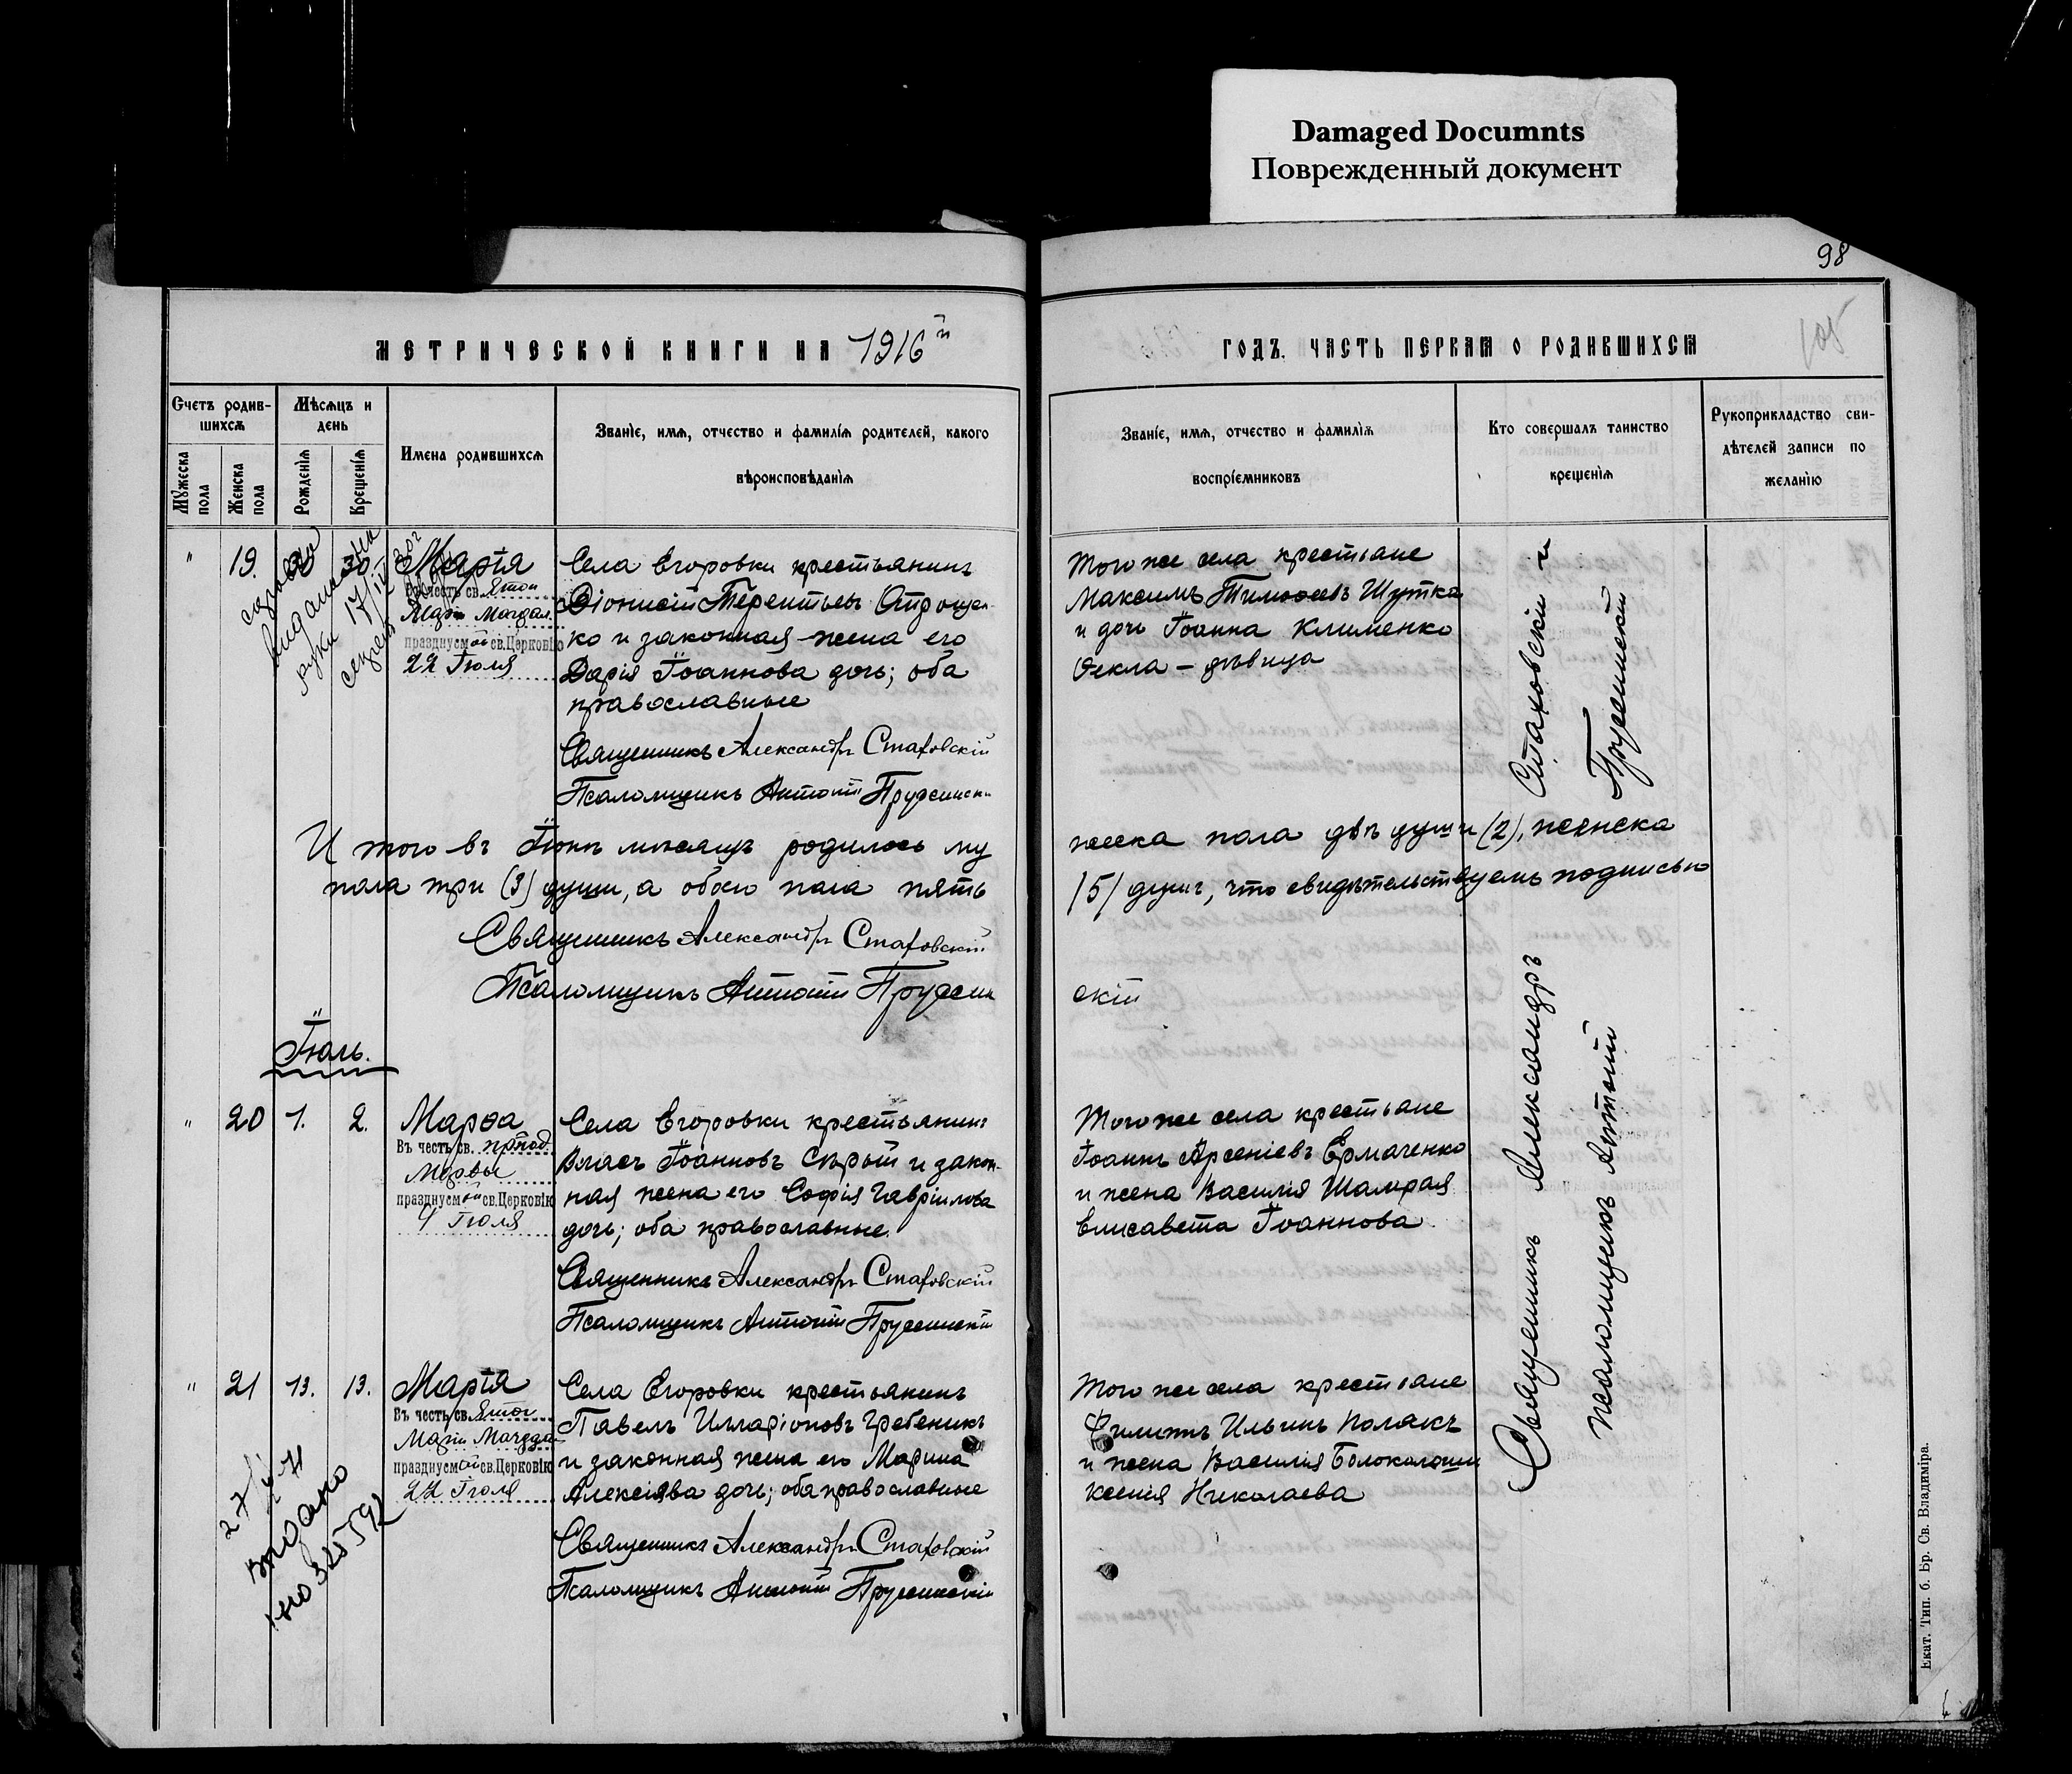 Damaged Documnts
Поврежденный документ
98
105
МЕТРИЧЕСКОЙ КНИГИ НА 1916й
ГОДЪ, ЧАСТЬ ПЕРВАЯ О РОДИВШИХСЯ
Счетъ родив-
шихся
Мужеска
пола
Женска
пола
Мѣсяцъ и
день
Рожденія
Крещенія
Имена родившихся
Званіе, имя, отчество и фамилія родителей, какого
вѣроисповѣданія
Званіе, имя, отчество и фамилія
воспріемниковъ
Кто совершалъ таинство
крещенія
Рукоприкладство сви-
дѣтелей записи по
желанію
" 19. 30 30 Марія
Въ честь св.
Маріи Магдал.
празднуемой св. Церковію
22 Іюля
Села Егоровки крестьянинъ
Діонисій Терентьевъ Отрощен-
ко и законная жена его
Дарія Іоаннова дочь; оба
православные
Священникъ Александръ Стаховскій
Псаломщикъ Антоній Пруссинскій
Того же села крестьяне
Максимъ Тимофеевъ Шутка
и дочь Іоанна Клименко
Ѳекла – дѣвица
Итого въ Іюнѣ мѣсяцѣ родилось му
жеска пола двѣ души (2), женска
пола три (3) души, а обоего пола пять
/5/ душъ, что свидѣтельствуемъ подписью
Священникъ Александръ Стаховскій
Псаломщикъ Антоній Пруссин
скій
Іюль.
" 20 1. 2. Марѳа
Въ честь св. препод.
Марѳы
празднуемой св. Церковію
4 Іюля
Села Егоровки крестьянинъ
Власъ Іоанновъ Сѣрый и закон-
ная жена его Софія Гавріилова
дочь; оба православные.
Священникъ Александръ Стаховскій
Псаломщикъ Антоній Пруссинскій
Того же села крестьяне
Іоаннъ Арсеніевъ Ермаченко
и жена Василія Шаморая
Елисавета Іоаннова
" 21 13. 13. Марія
Въ честь св.
Маріи Магдал
празднуемой св. Церковію
22 Іюля
Села Егоровки крестьянинъ
Павелъ Илларіоновъ Гребеникъ
и законная жена его Марина
Алексіева дочь; оба православные
Священникъ Александръ Стаховскій
Псаломщикъ Антоній Пруссинскій
Того же села крестьяне
Филиппъ Ильинъ Полакъ
и жена Василія
Ксенія Николаева
выдано
Священникъ Александръ Стаховскій и
псаломщикъ Антоній Пруссинскій
Екат. Тип. б. Бр. Св. Владиміра.